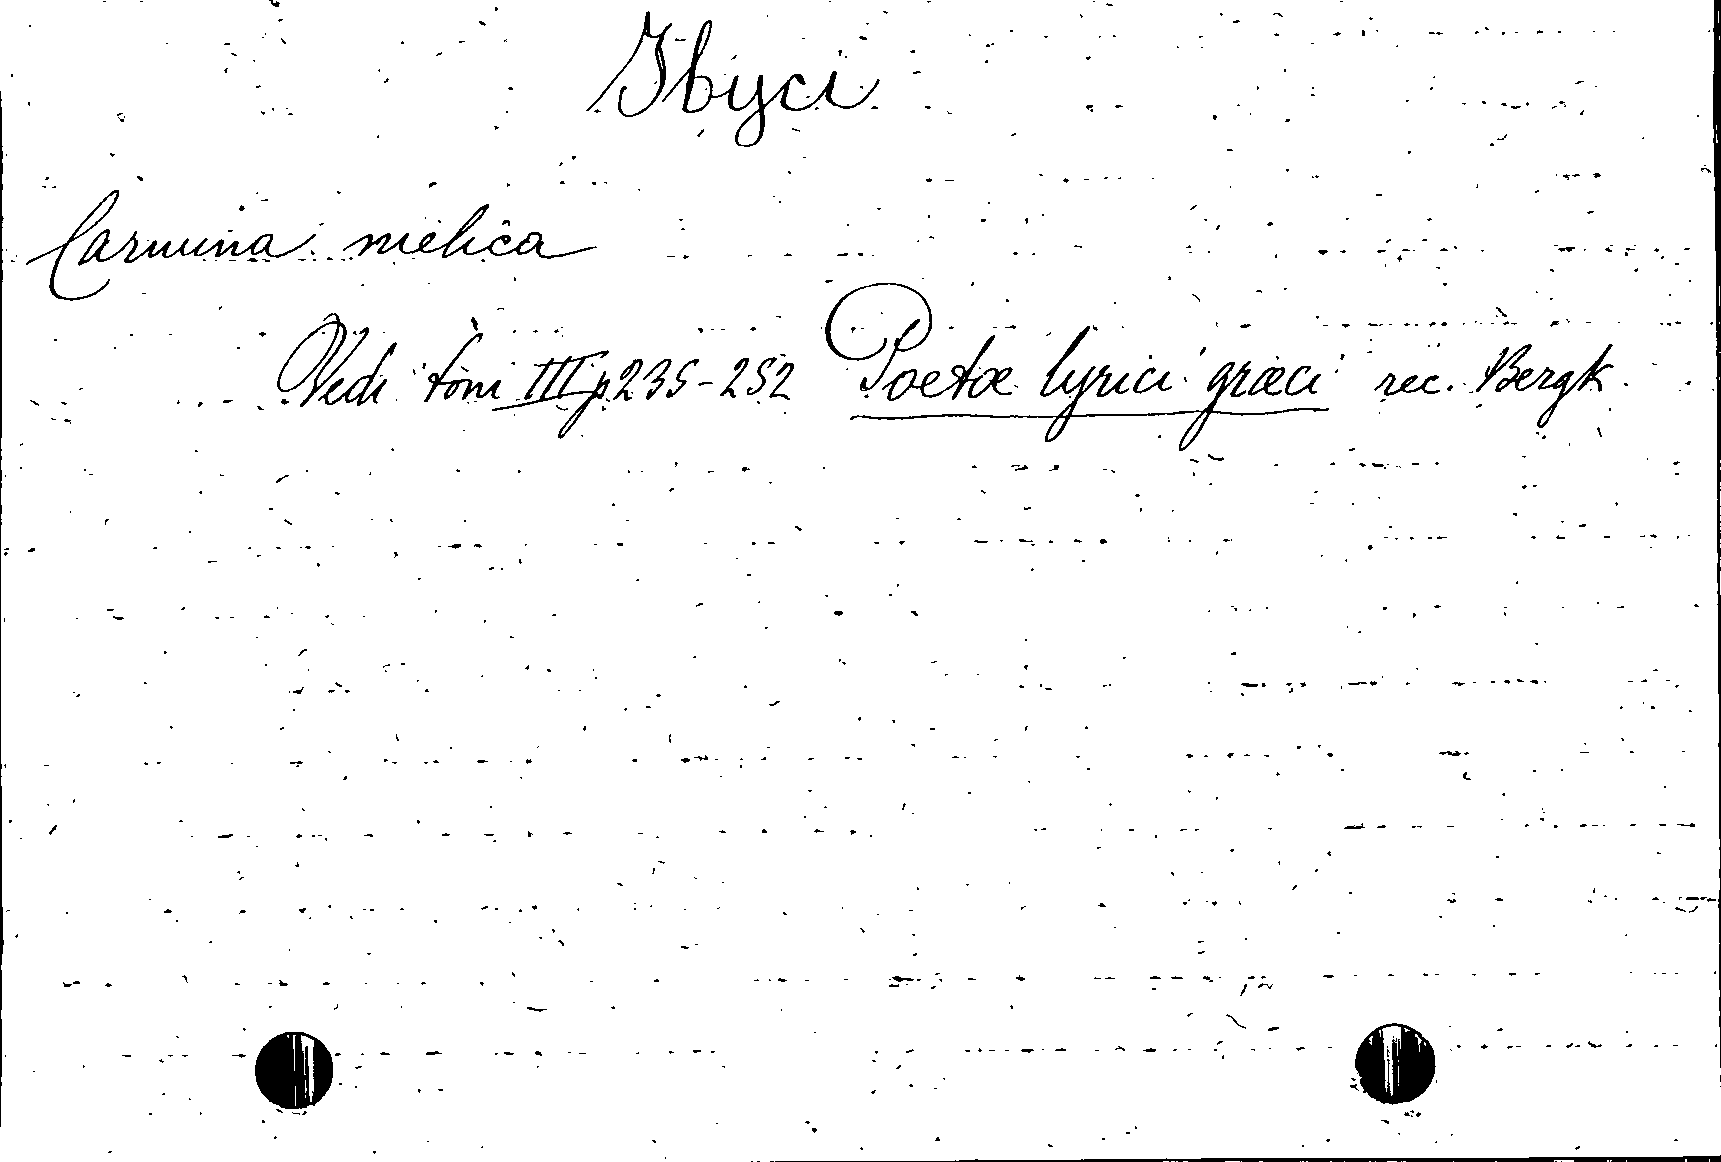 Ibyci
Carmina melica
Vedi tom III p 235-252 Poetæ lyrici græci rec. Bergk